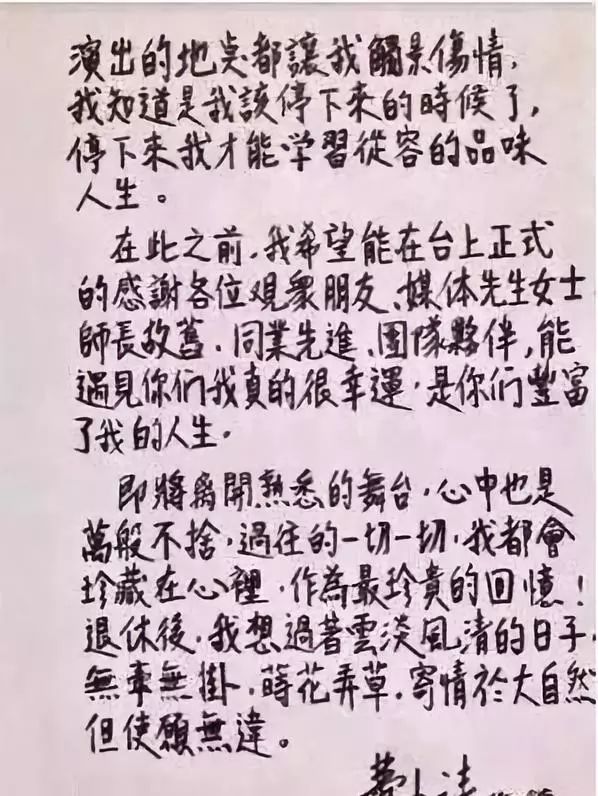 演出的地点都讓我觸景傷情，
我知道是我該停下來的時候了，
停下來我才能学習從容的品味
人生。
在此之前，我希望能在台上正式
的感謝各位观眾朋友、媒体先生女士
師長故舊．同業先進、團隊夥伴，能
遇見你们我真的很幸運，是你们豐富
了我的人生。
即將离開熟悉的舞台，心中也是
萬般不捨，過往的一切一切，我都會
珍藏在心裡，作為最珍貴的回憶！
退休後，我想過著雲淡風清的日子，
無牽無掛，蒔花弄草，寄情於大自然
但使願無違。